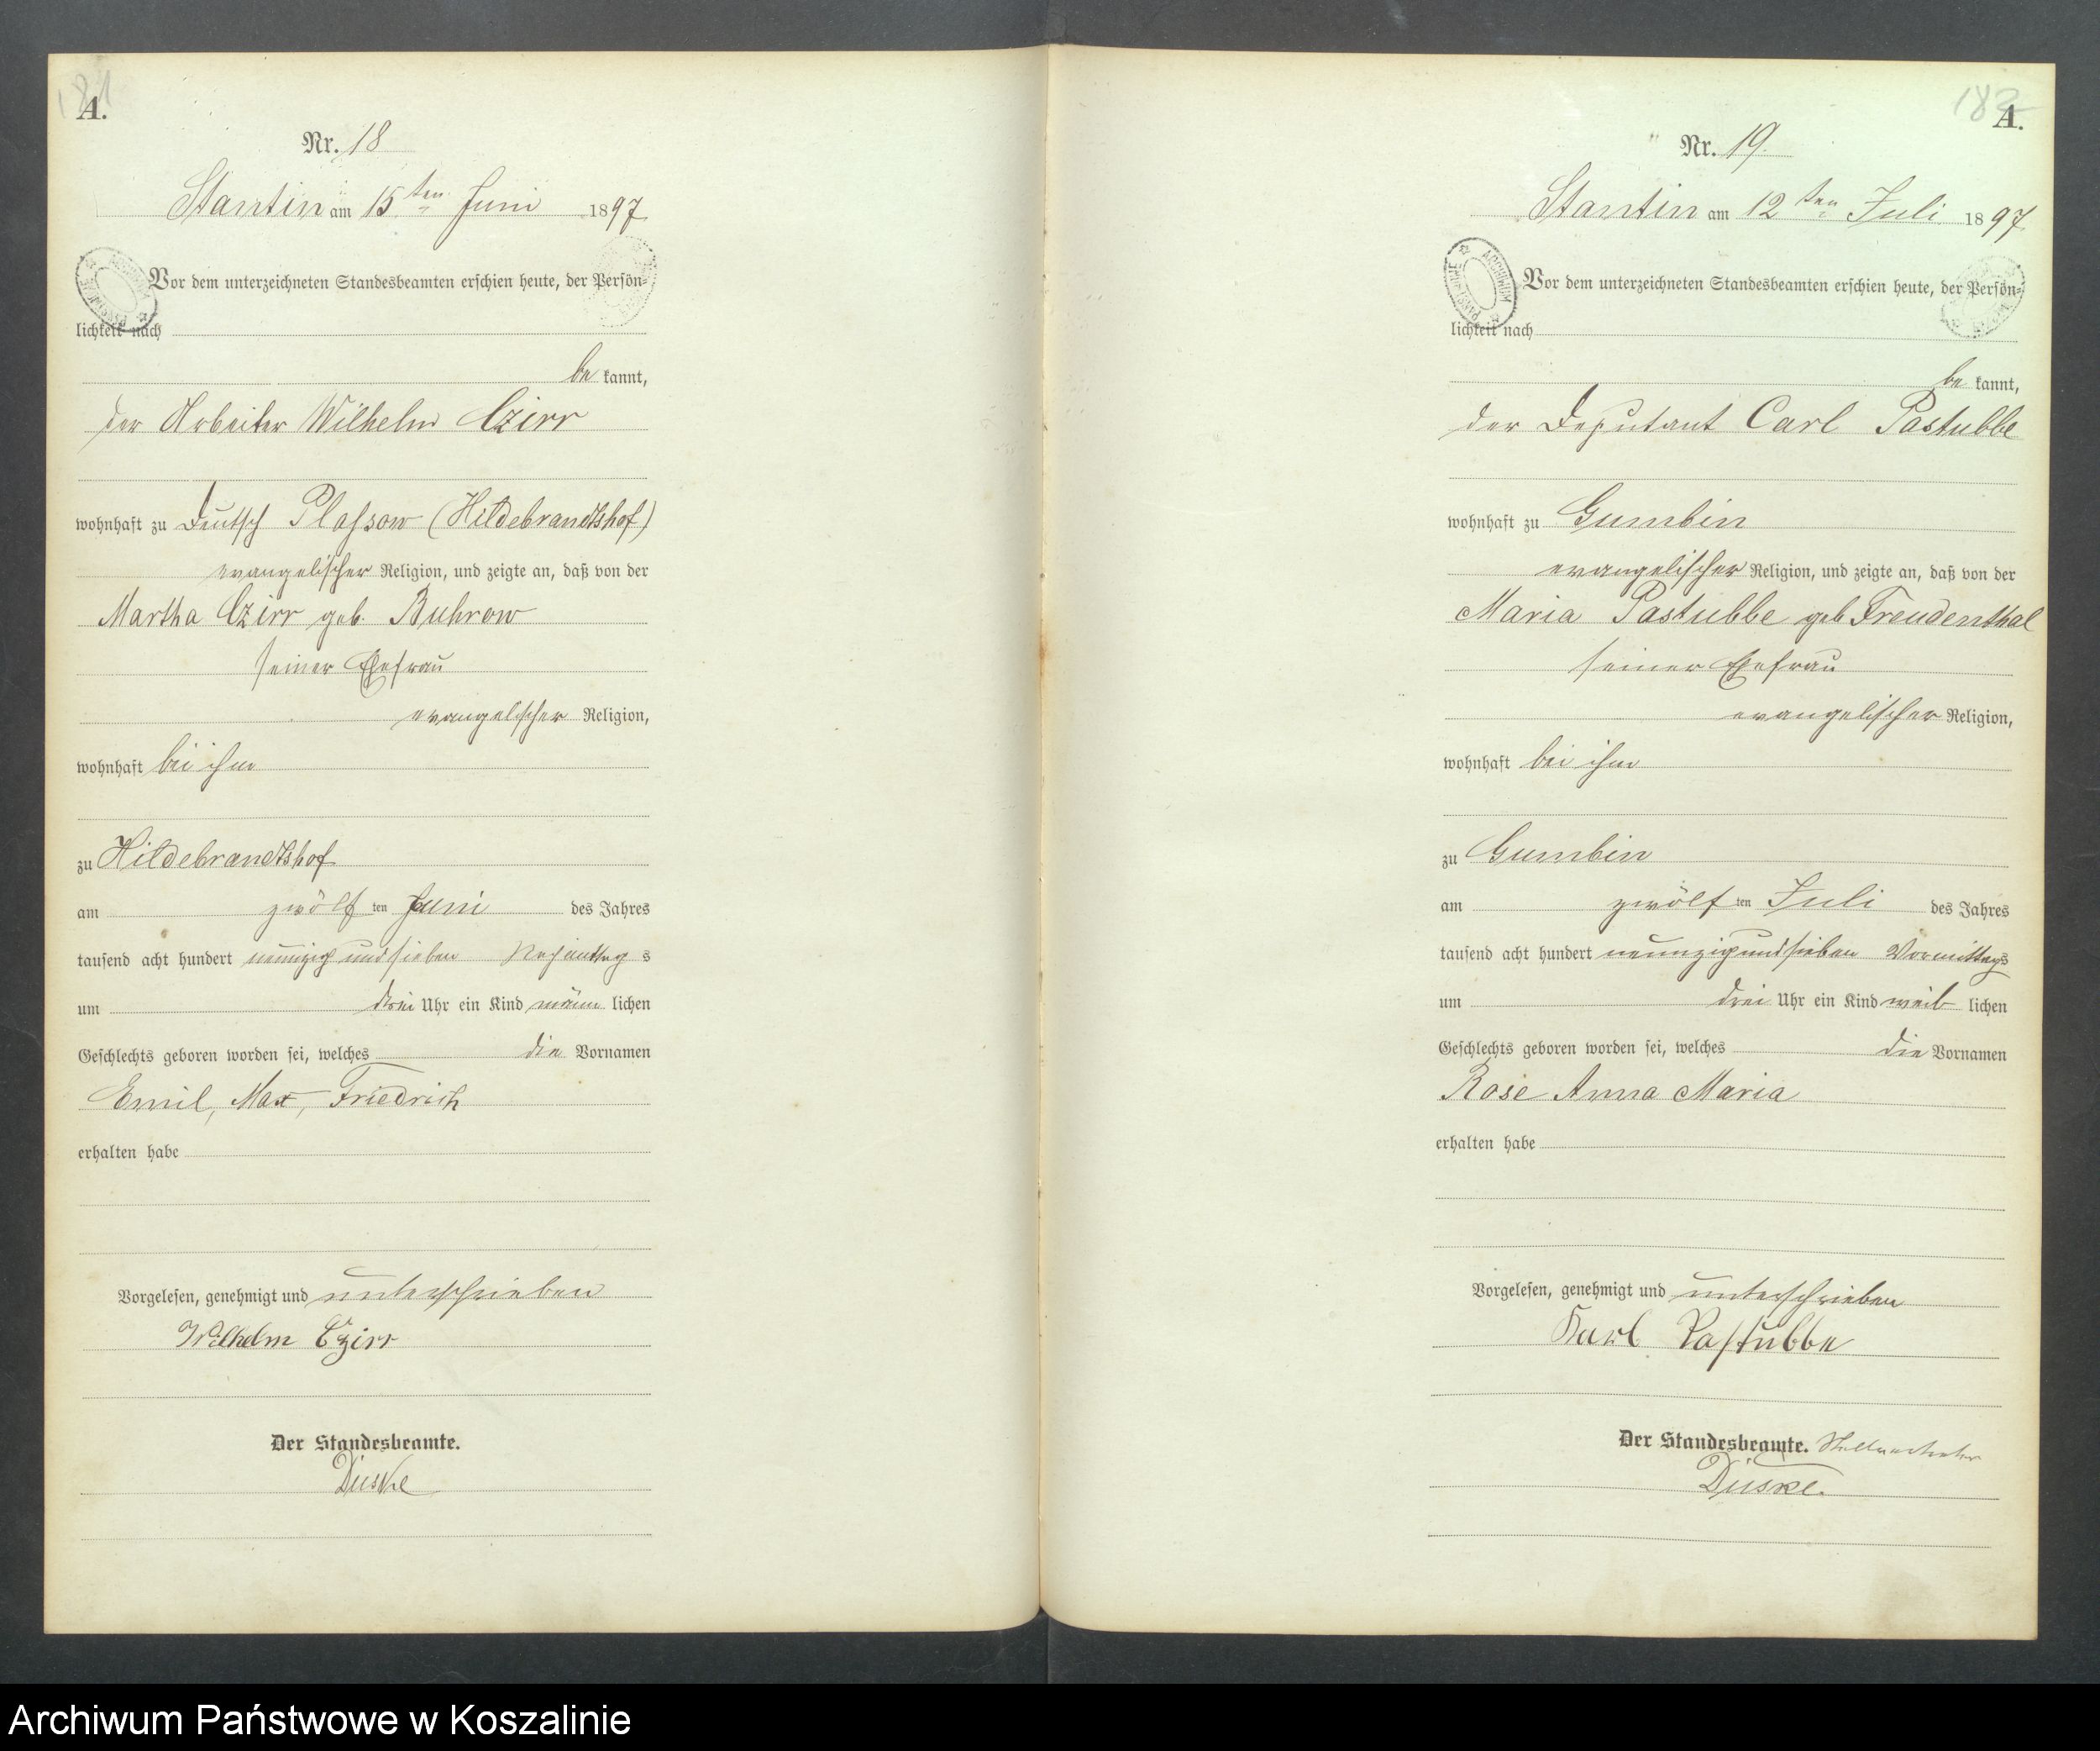 181
A.
Nr. 18
Stantin am 15ten Juni 1897
Vor dem unterzeichneten Standesbeamten erschien heute, der Persön-
lichkeit nach
bekannt,
der Arbeiter Wilhelm Czirr
wohnhaft zu Deutsch Plassow (Hildebrandtshof)
evangelischer Religion, und zeigte an, daß von der
Martha Czirr geb. Buhrow
seiner Ehefrau
evangelischer Religion,
wohnhaft bei ihm
zu Hildebrandtshof
am zwölften Juni des Jahres
tausend acht hundert neunzig und sieben Nachmittags
um drei Uhr ein Kind männlichen
Geschlechts geboren worden sei, welches die Vornamen
Emil, Max, Friedrich
erhalten habe
Vorgelesen, genehmigt und unterschrieben
Wilhelm Czirr
Der Standesbeamte.
Düske
182
A.
Nr. 19.
Stantin am 12ten Juli 1897
Vor dem unterzeichneten Standesbeamten erschien heute, der Persön-
lichkeit nach
bekannt,
der Deputant Carl Pastubbe
wohnhaft zu Gumbin
evangelischer Religion, und zeigte an, daß von der
Maria Pastubbe geb Freudenthal
seiner Ehefrau
evangelischer Religion,
wohnhaft bei ihm
zu Gumbin
am zwölften Juli des Jahres
tausend acht hundert neunzig und sieben Vormittags
um drei Uhr ein Kind weiblichen
Geschlechts geboren worden sei, welches die Vornamen
Rose Anna Maria
erhalten habe
Vorgelesen, genehmigt und unterschrieben
Karl Pastubbe
Der Standesbeamte. Stellvertreter
Düske.
Archiwum Państwowe w Koszalinie